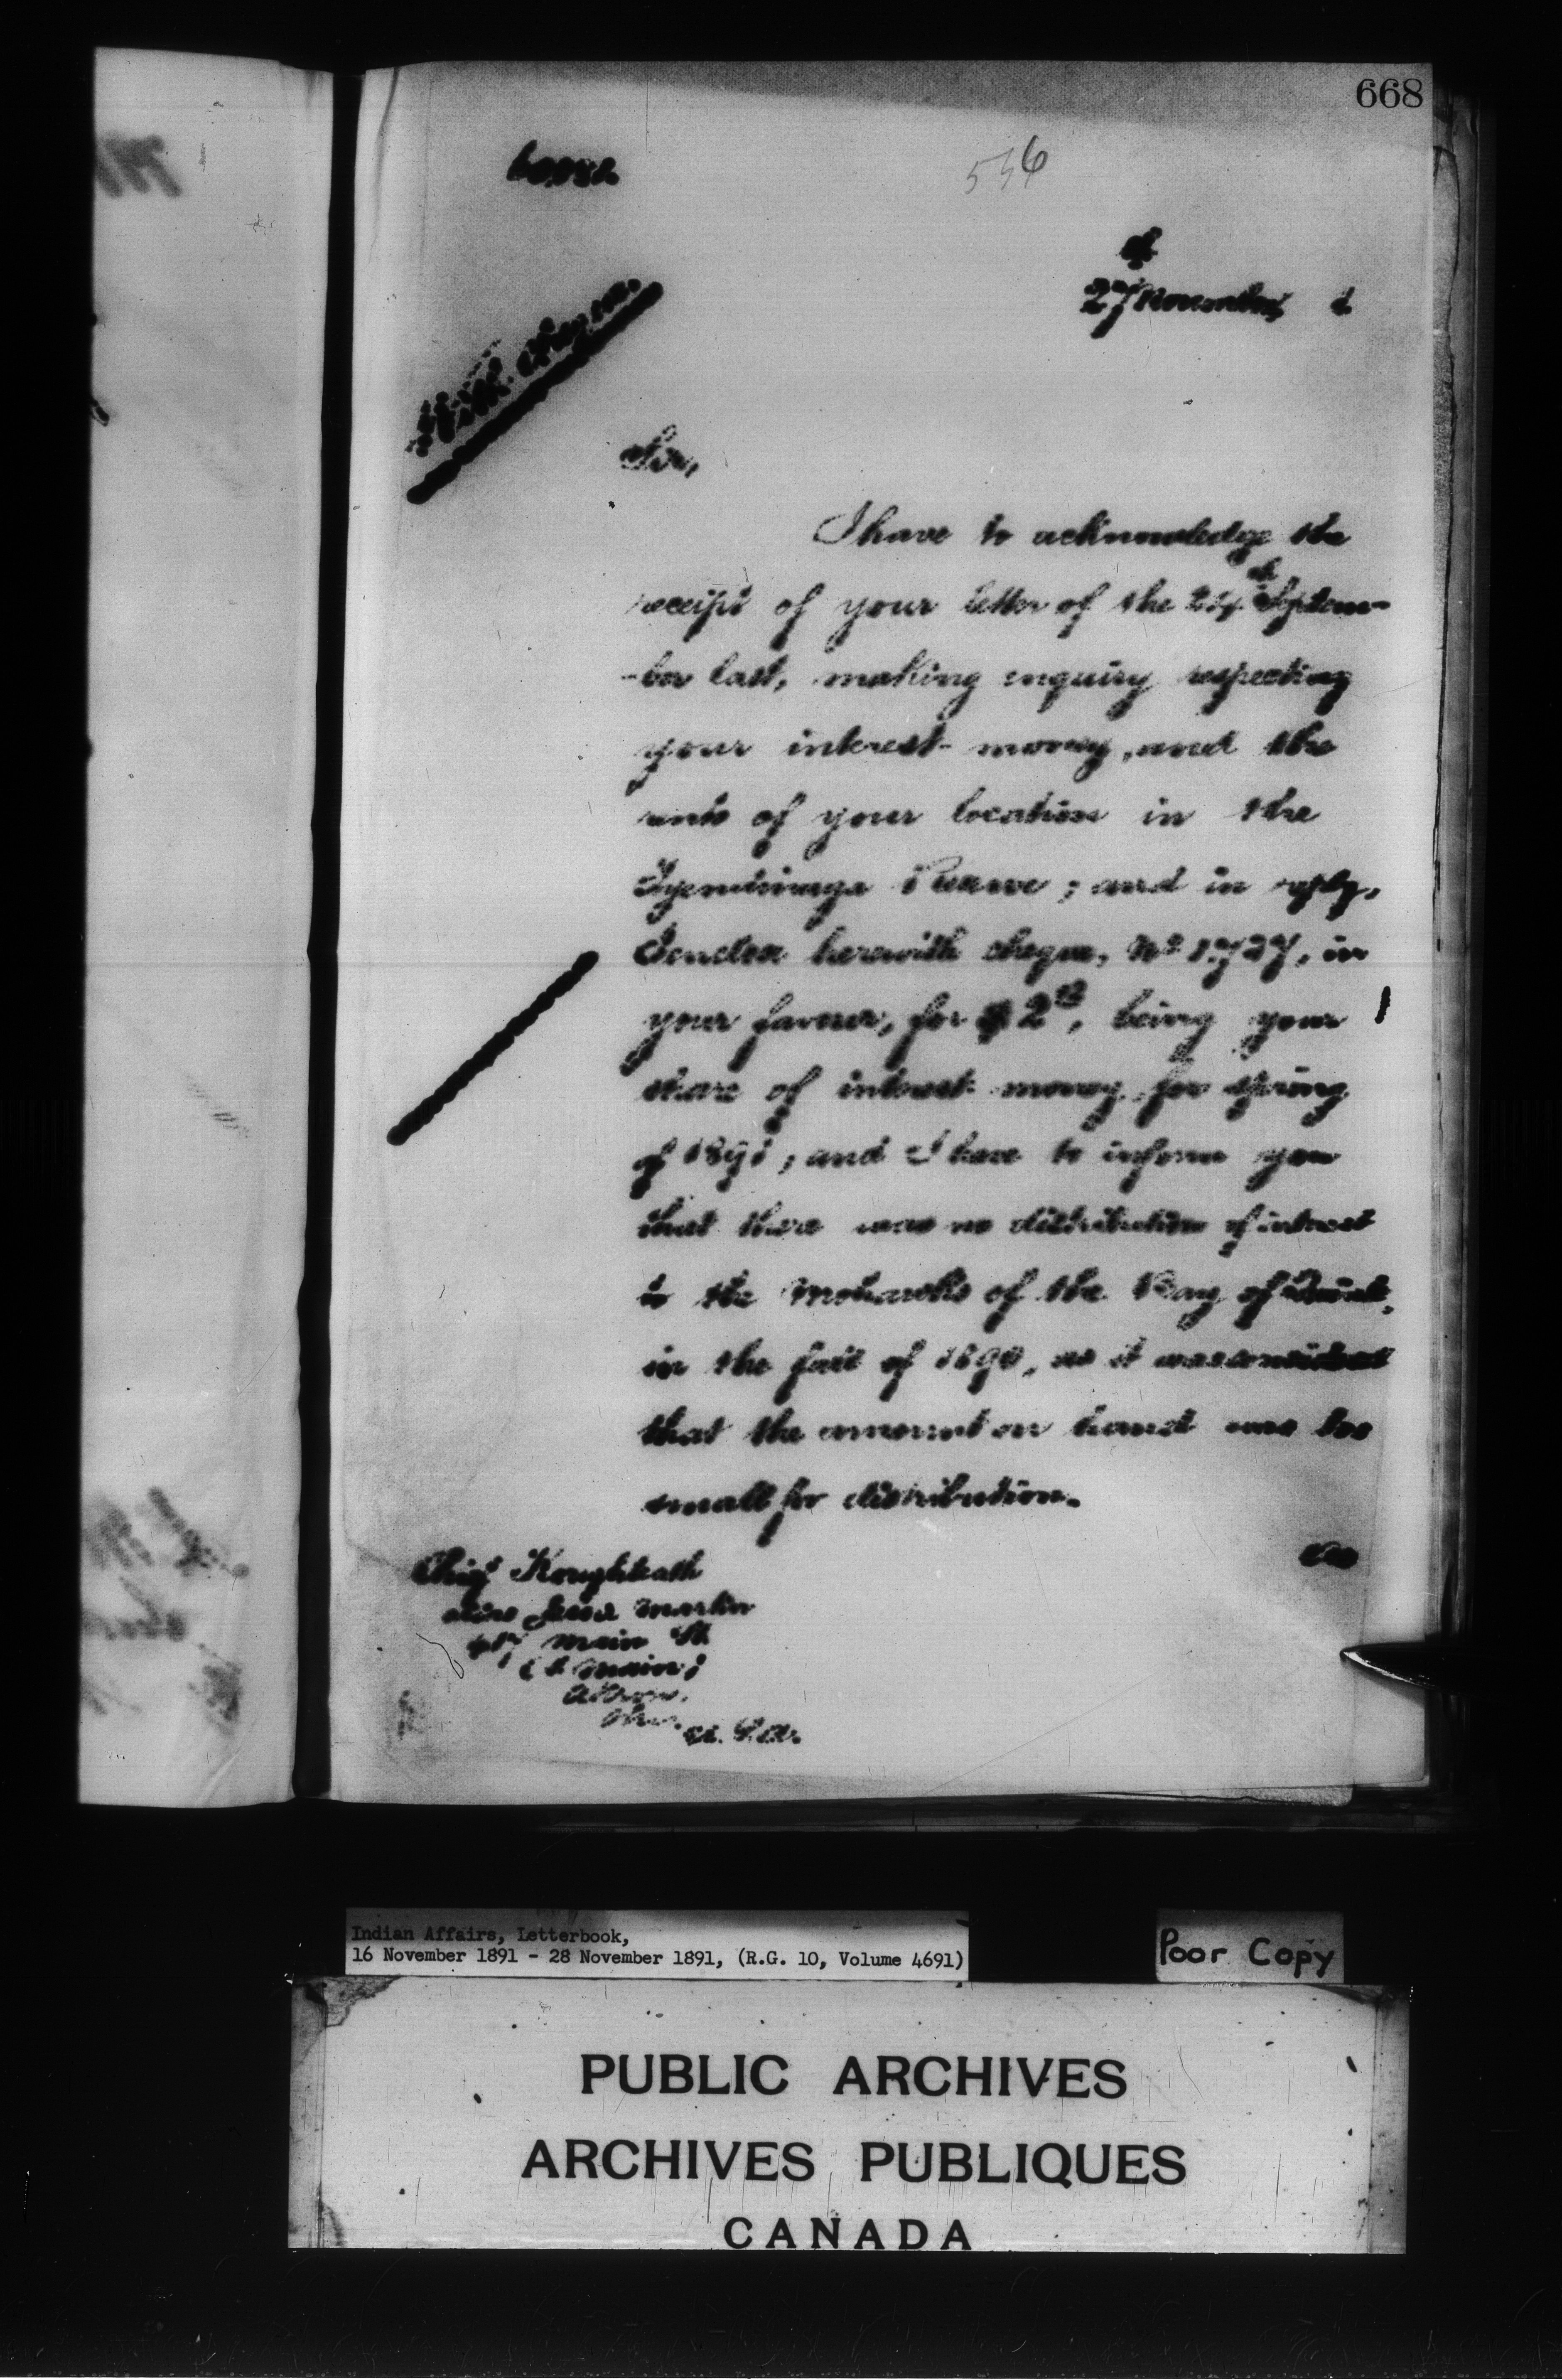 668
556
27 November 1
Sir,
I have to acknowledge the
receipt of your letter of the 24th Septem-
-ber last, making enquiry respecting
your interest money, and the
rents of your location in the
Tyendinaga Reserve; and in reply,
I enclose herewith cheque, No 1727, in
your favour, for $2, being your
share of interest money for spring
of 1891; and I have to inform you
that there was no distribution of interest
to the Mohawks of the Bay of Quinté,
in the fall of 1890, as it was considered
that the amount on hand was too
small for distribution.
Chief
alias Martin
417 Main St
(S. Main)
Akron,
Ohio. U.S.A.
Indian Affairs, Letterbook,
16 November 1891 - 28 November 1891, (R.G. 10, Volume 4691)
Poor Copy
PUBLIC ARCHIVES
ARCHIVES PUBLIQUES
CANADA